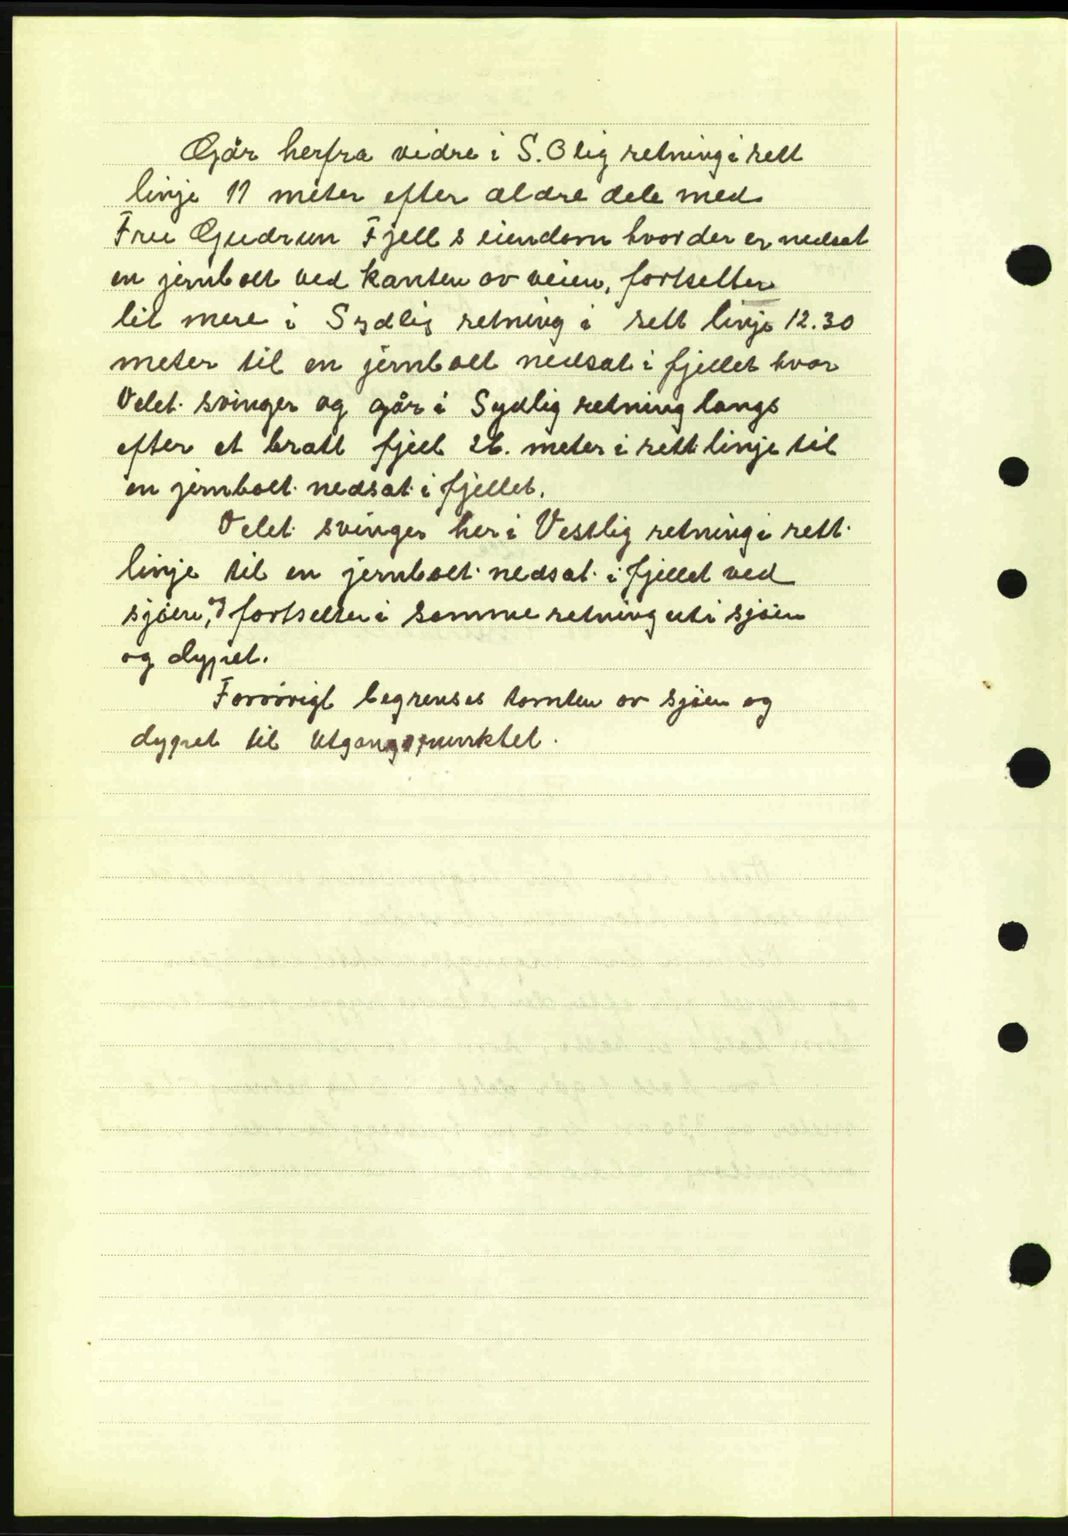 Går herfra vidre i S.Ølig retning i rett
linje 11 meter efter ældre dele med
Fru Gudrun Fjells eiendom hvor der er nedsat
en jernbolt ved kanten av veien, fortsetter
lit mere i Sydlig retning i rett linje 12.30
meter til en jernbolt nedsat i fjellet hvor
Delet svinger og går i Sydlig retning langs
efter et bratt fjell 26. meter i rett linje til
en jernbolt nedsat i fjellet.
Delet svinger her i Vestlig retning i rett
linje til en jernbolt nedsat i fjellet ved
sjøen, og fortsetter i samme retning ut i sjøen
og dypet.
Forøvrigt begrenses tomten av sjøen og
dypet til utgangspunktet.